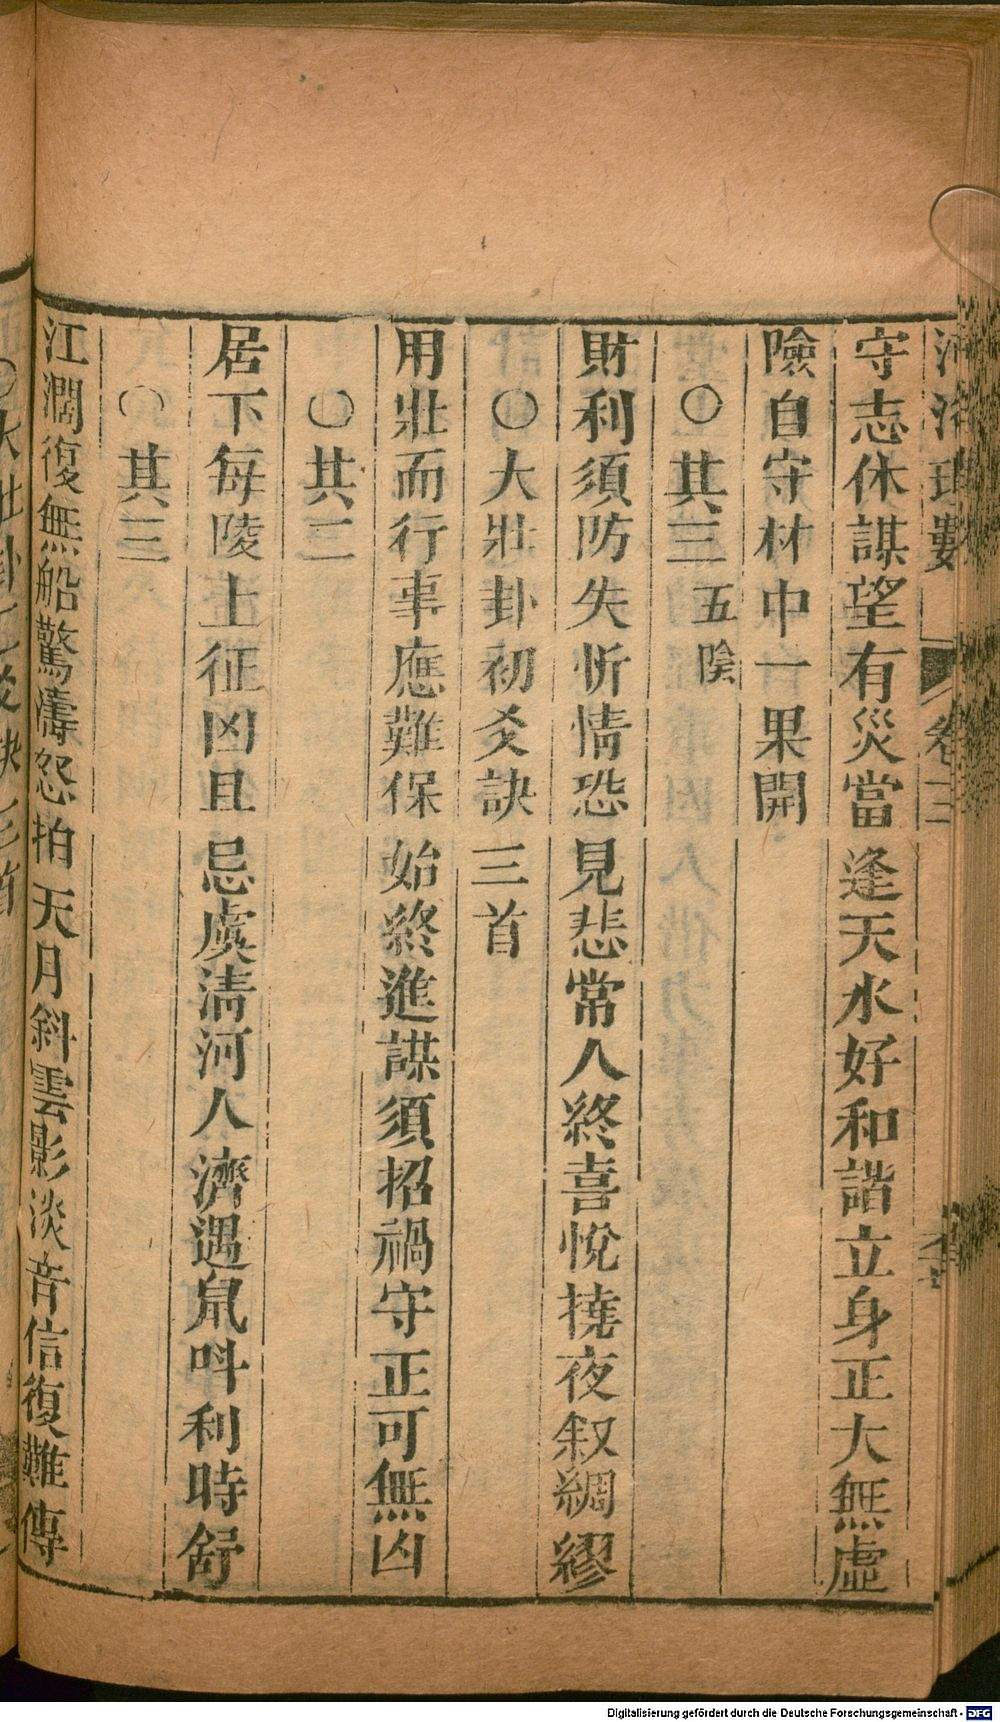 守志休謀望有災當逢天水好和諧立身正大無虛
險自守材中一果開
〇其三五陰
財利須防失忻情恐見悲常人終喜悅撓夜叙綢繆
〇大壯卦初爻訣三首
用壯而行事應難保始終進謀須招禍守正可無凶
〇其二
居下每陵上征凶且忌虞清河人濟遇鼠呌利時舒
〇其三
江濶復無船驚濤怒拍天月斜雲影淡音信復難傳
Digitalisierung gefördert durch die Deutsche Forschungsgemeinschaft - DFG